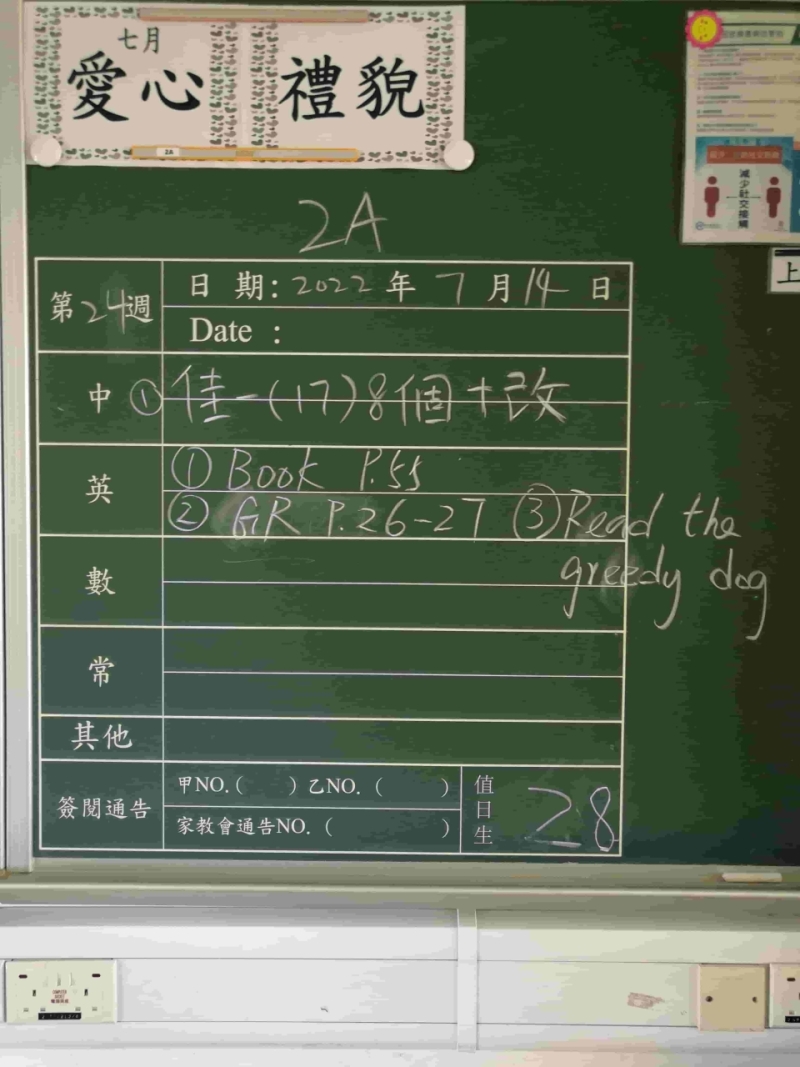 七月
愛心 禮貌
2A
減少社交接觸
上
2A
第24週
日 期: 2022 年 7 月 14 日
Date :
中 ① 佳一(17)8個+改
英
① Book P.55
② GR P.26-27 ③ Read the
greedy dog
數
常
其他
簽閱通告
甲NO.( ) 乙NO. ( )
家教會通告NO. ( )
值日生 28